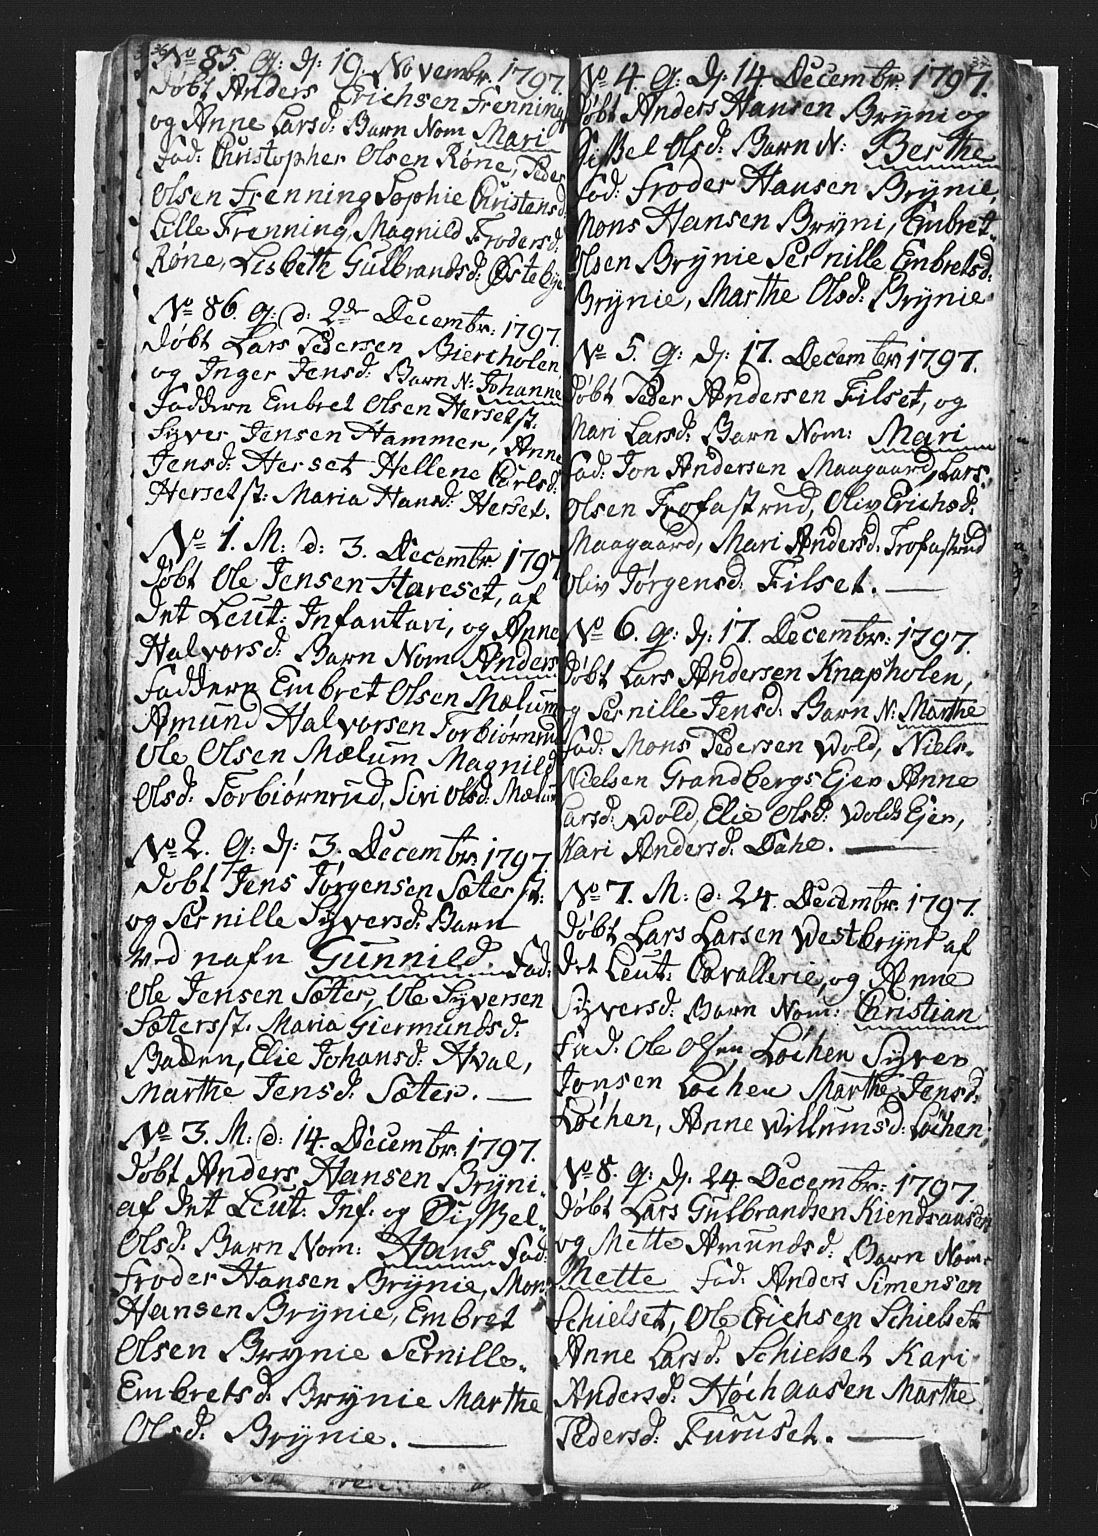 36
No 85. Q: D: 19. Novembr. 1797.
Døbt Anders Erichsen Frenning
og Anne Larsd: Barn Nom Mari
Fad: Christopher Olsen Røne, Peder
Olsen Frenning Sophie Christensd:
Lille Frenning, Magnild Frodersd:
Røne, Lisbeth Gulbrandsd: Østebye
No 86. Q: d: 2de Decembr: 1797.
Døbt Lars Pedersen Biercholen
og Inger Jensd: Barn N: Johanne
Faddern Embret Olsen Hersetst.
Syver Jensen Hammer, Anne
Jensd: Herset Hellene Carlsd:
Hersetst: Maria Hansd: Herset.
No 1. M: d: 3. Decembr 1797
Døbt Ole Jensen Hareset, af
det Leut: Infantari, og Anne
Halvorsd: Barn Nom Anders
Faddern Embret Olsen Mælum
Amund Halvorsen Torbiørnrud
Ole Olsen Mælum Magnild
Olsd: Torbiørnrud, Siri Olsd: Mælum
No 2. Q: D: 3. Decembr. 1797.
Døbt Jens Jørgensen Sæterst:
og Pernille Syversd: Barn
ved nafn Gunnild. Fad:
Ole Jensen Sæter, Ole Syversen
Sætersst. Maria Giermundsd:
Baden, Elie Johansd: Hval,
Marthe Jensd: Sæter.
No 3. M: d: 14. Decembr. 1797.
Døbt Anders Hansen Bryni
af det Leut: Inf. og Sissel
Olsd: Barn Nom: Hans Fad:
Froder Hansen Brynie, Mons
Hansen Brynie, Embret
Olsen Brynie Pernille
Embretsd: Brynie Marthe
Olsd: Brynie.
37
No 4. Q: D: 14 Decembr: 1797.
Døbt Anders Hansen Bryni og
Sissel Olsd: Barn N: Berthe
Fad: Froder Hansen Brynie,
Mons Hansen Bryni, Embret
Olsen Brynie Pernille Embretsd:
Brynie, Marthe Olsd: Brynie
No 5. Q: D: 17. Decembr 1797.
Døbt Peder Andersen Filset, og
Mari Larsd: Barn Nom: Mari
Fad: Jon Andersen Maagaard, Lars
Olsen Trofastrud, Oliv Erichsd:
Maagaard, Mari Andersd: Trofastrud
Oliv Jørgensd: Filset.
No 6. Q: D: 17. Decembr: 1797.
Døbt Lars Andersen Knapholen,
og Pernille Jensd: Barn N: Marthe
Fad: Mons Pedersen Wold, Niels
Nielsen Grandbergs Ejer Anne
Larsd: Wold, Elie Olsd: Wolds Ejer,
Kari Andersd: Dahe.
No 7. M: d: 24. Decembr. 1797.
Døbt Lars Larsen Westbrynt af
det Leut: Cavallerie, og Anne
Syversd: Barn Nom: Christian
Fad: Ole Olsen Løchen Syver
Jonsen Løchen Marthe Jensd:
Løchen, Anne Willumsd: Løchen.
No 8. Q: D: 24. Decembr: 1797.
Døbt Lars Gulbrandsen Kiendsaasen
og Mette Amundsd: Barn Nom:
Mette Fad: Anders Simensen
Schielset, Ole Erichsen Schielset
Anne Larsd: Schielset Kari
Andersd: Høchaasen Marthe
Pedersd: Furuset.